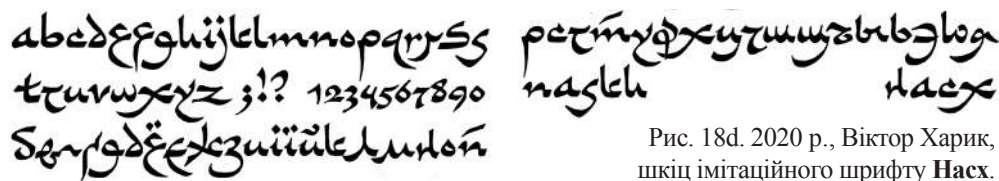 abcdefghijklmnopqrrSs
tuvwxyz ;!? 1234567890
рстуфхцчшщъыьэюя
naskh насх
Рис. 18d. 2020 р., Віктор Харик,
шкіц імітаційного шрифту Насх.